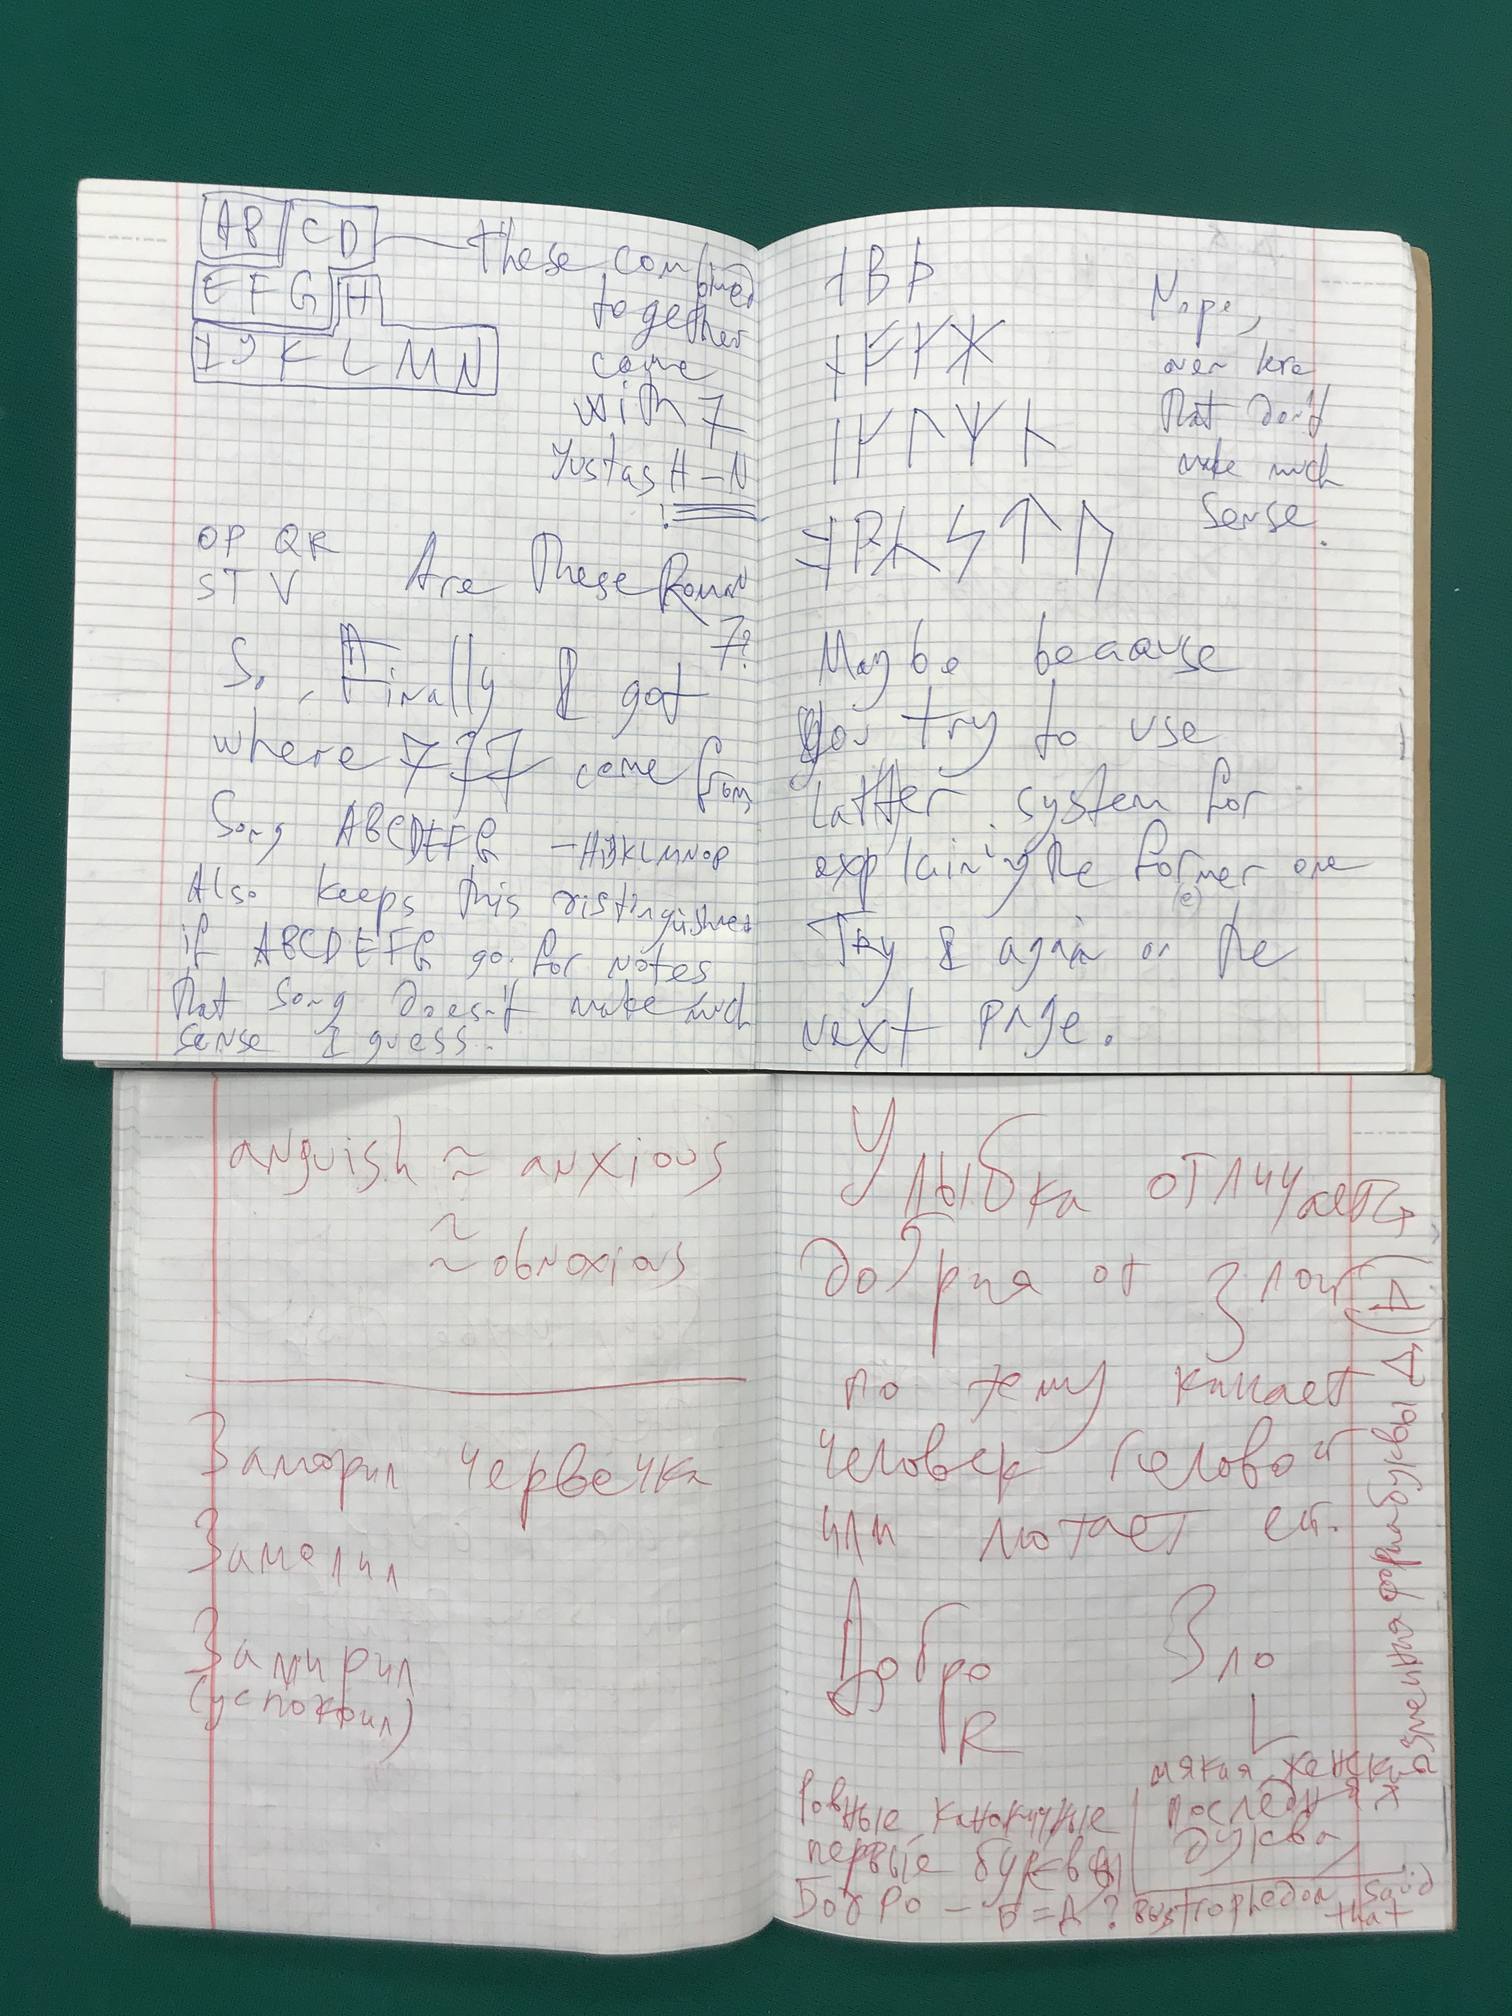 AB CD
EFG H
IJ K L M N
these combined
together
come
with 7
Yustas H-N
!
OP QR
STV
Are these Roman
7?
So, Finally I got
where 777 come from
Song ABCDEFG - HIJKLMNOP
Also keeps this distinguished
if ABCDEFG go for notes
that song doesn't make much
sense I guess.
ᚭᛒᚦ
ᚠᚴᚼ
ᛁᚴᛚᛘᚿ
ᚱᛋᛏᚢ
Nope,
that don't
make much
sense.
Maybe because
you try to use
latter system for
explaining the former one
(e)
Try & again on the
next page.
anguish ≈ anxious
≈
≈ obnoxious
Заморил червечка
Замолил
Замирил
(успокоил)
Улыбка отличается
добрая от злой (A)
по тему кикает
человек головой
или мотает ей.
Добро
R
Зло
L
мякая женская
последняя
буква
Ровные, каноничные
первые буквы
Бодро - Б=Д?
Bustrophedon said
that
изменная форма буквы Д